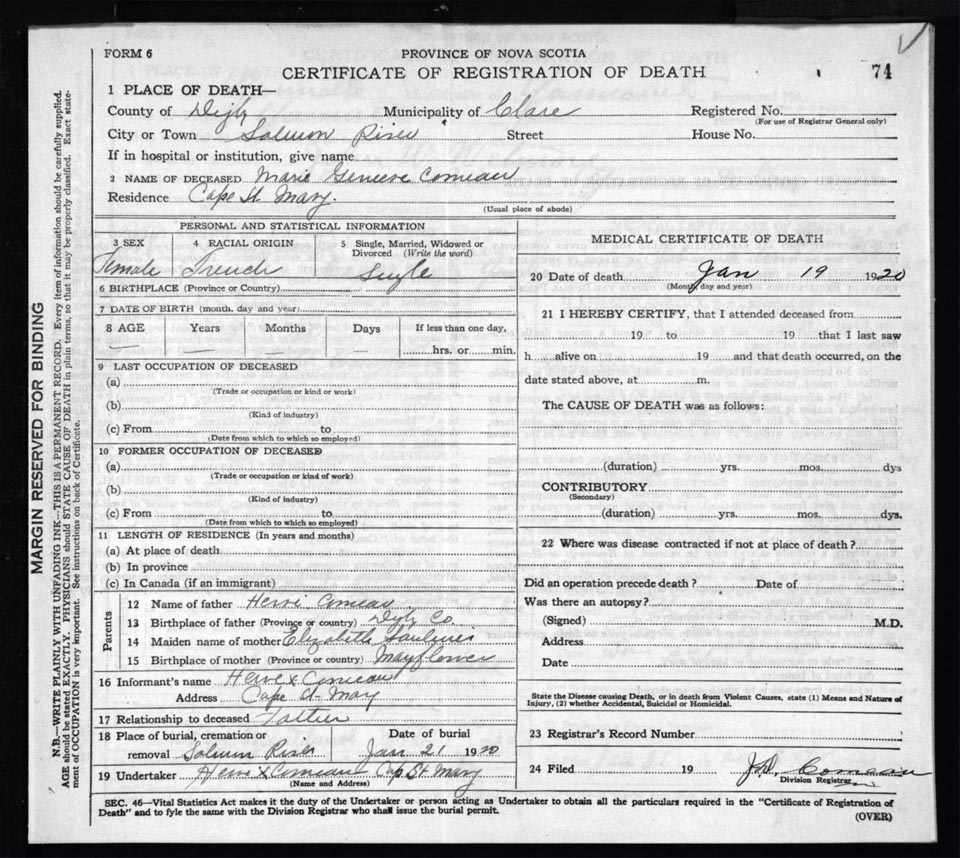 FORM 6
PROVINCE OF NOVA SCOTIA
CERTIFICATE OF REGISTRATION OF DEATH
74
1 PLACE OF DEATH—
County of Digby Municipality of Clare Registered No.
(For use of Registrar General only)
City or Town Salmon River Street House No.
If in hospital or institution, give name
2 NAME OF DECEASED Marie Genieve Comeau
Residence Cape St Mary.
(Usual place of abode)
PERSONAL AND STATISTICAL INFORMATION
3 SEX 4 RACIAL ORIGIN 5 Single, Married, Widowed or
Divorced (Write the word)
Female French Single
6 BIRTHPLACE (Province or Country)
7 DATE OF BIRTH (month, day and year)
8 AGE Years Months Days If less than one day,
— — — hrs. or min.
9 LAST OCCUPATION OF DECEASED
(a)
(Trade or occupation or kind or work)
(b)
(Kind of industry)
(c) From to
(Date from which to which so employed)
10 FORMER OCCUPATION OF DECEASED
(a)
(Trade or occupation or kind of work)
(b)
(Kind of industry)
(c) From to
(Date from which to which so employed)
11 LENGTH OF RESIDENCE (In years and months)
(a) At place of death
(b) In province
(c) In Canada (if an immigrant)
Parents
12 Name of father Hervi Comeau
13 Birthplace of father (Province or country) Digby Co.
14 Maiden name of mother Elizabeth Saulnier
15 Birthplace of mother (Province or country) Mayflower
16 Informant's name Herve x Comeau
Address Cape St Mary
17 Relationship to deceased Father
18 Place of burial, cremation or Date of burial
removal Salmon River Jan 21 1920
19 Undertaker Hervi x Comeau Cap St Mary
(Name and Address)
MEDICAL CERTIFICATE OF DEATH
20 Date of death Jan 19 1920
(Month day and year)
21 I HEREBY CERTIFY, that I attended deceased from
19 to 19 that I last saw
h alive on 19 and that death occurred, on the
date stated above, at m.
The CAUSE OF DEATH was as follows:
(duration) yrs. mos. dys
CONTRIBUTORY
(Secondary)
(duration) yrs. mos. dys.
22 Where was disease contracted if not at place of death?
Did an operation precede death? Date of
Was there an autopsy?
(Signed) M.D.
Address
Date
State the Disease causing Death, or in death from Violent Causes, state (1) Means and Nature of
Injury, (2) whether Accidental, Suicidal or Homicidal.
23 Registrar's Record Number
24 Filed 19 Comeau
Division Registrar
SEC. 46—Vital Statistics Act makes it the duty of the Undertaker or person acting as Undertaker to obtain all the particulars required in the "Certificate of Registration of
Death" and to fyle the same with the Division Registrar who shall issue the burial permit.
(OVER)
MARGIN RESERVED FOR BINDING
N.B.—WRITE PLAINLY WITH UNFADING INK—THIS IS A PERMANENT RECORD. Every item of information should be carefully supplied.
AGE should be stated EXACTLY. PHYSICIANS should STATE CAUSE OF DEATH in plain terms, so that it may be properly classified. Exact state-
ment of OCCUPATION is very important. See instructions on back of Certificate.